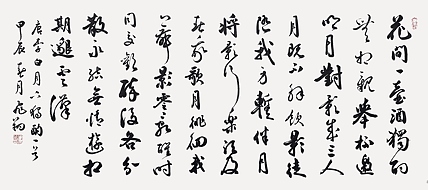 花間一壺酒獨酌
無相親舉杯邀
明月對影成三人
月既不解飲影徒
隨我身暫伴月
將影行樂須及
春我歌月徘徊我
舞影零亂醒時
同交歡醉後各分
散永結無情遊相
期邈雲漢
唐李白月下獨酌一首
甲辰春月